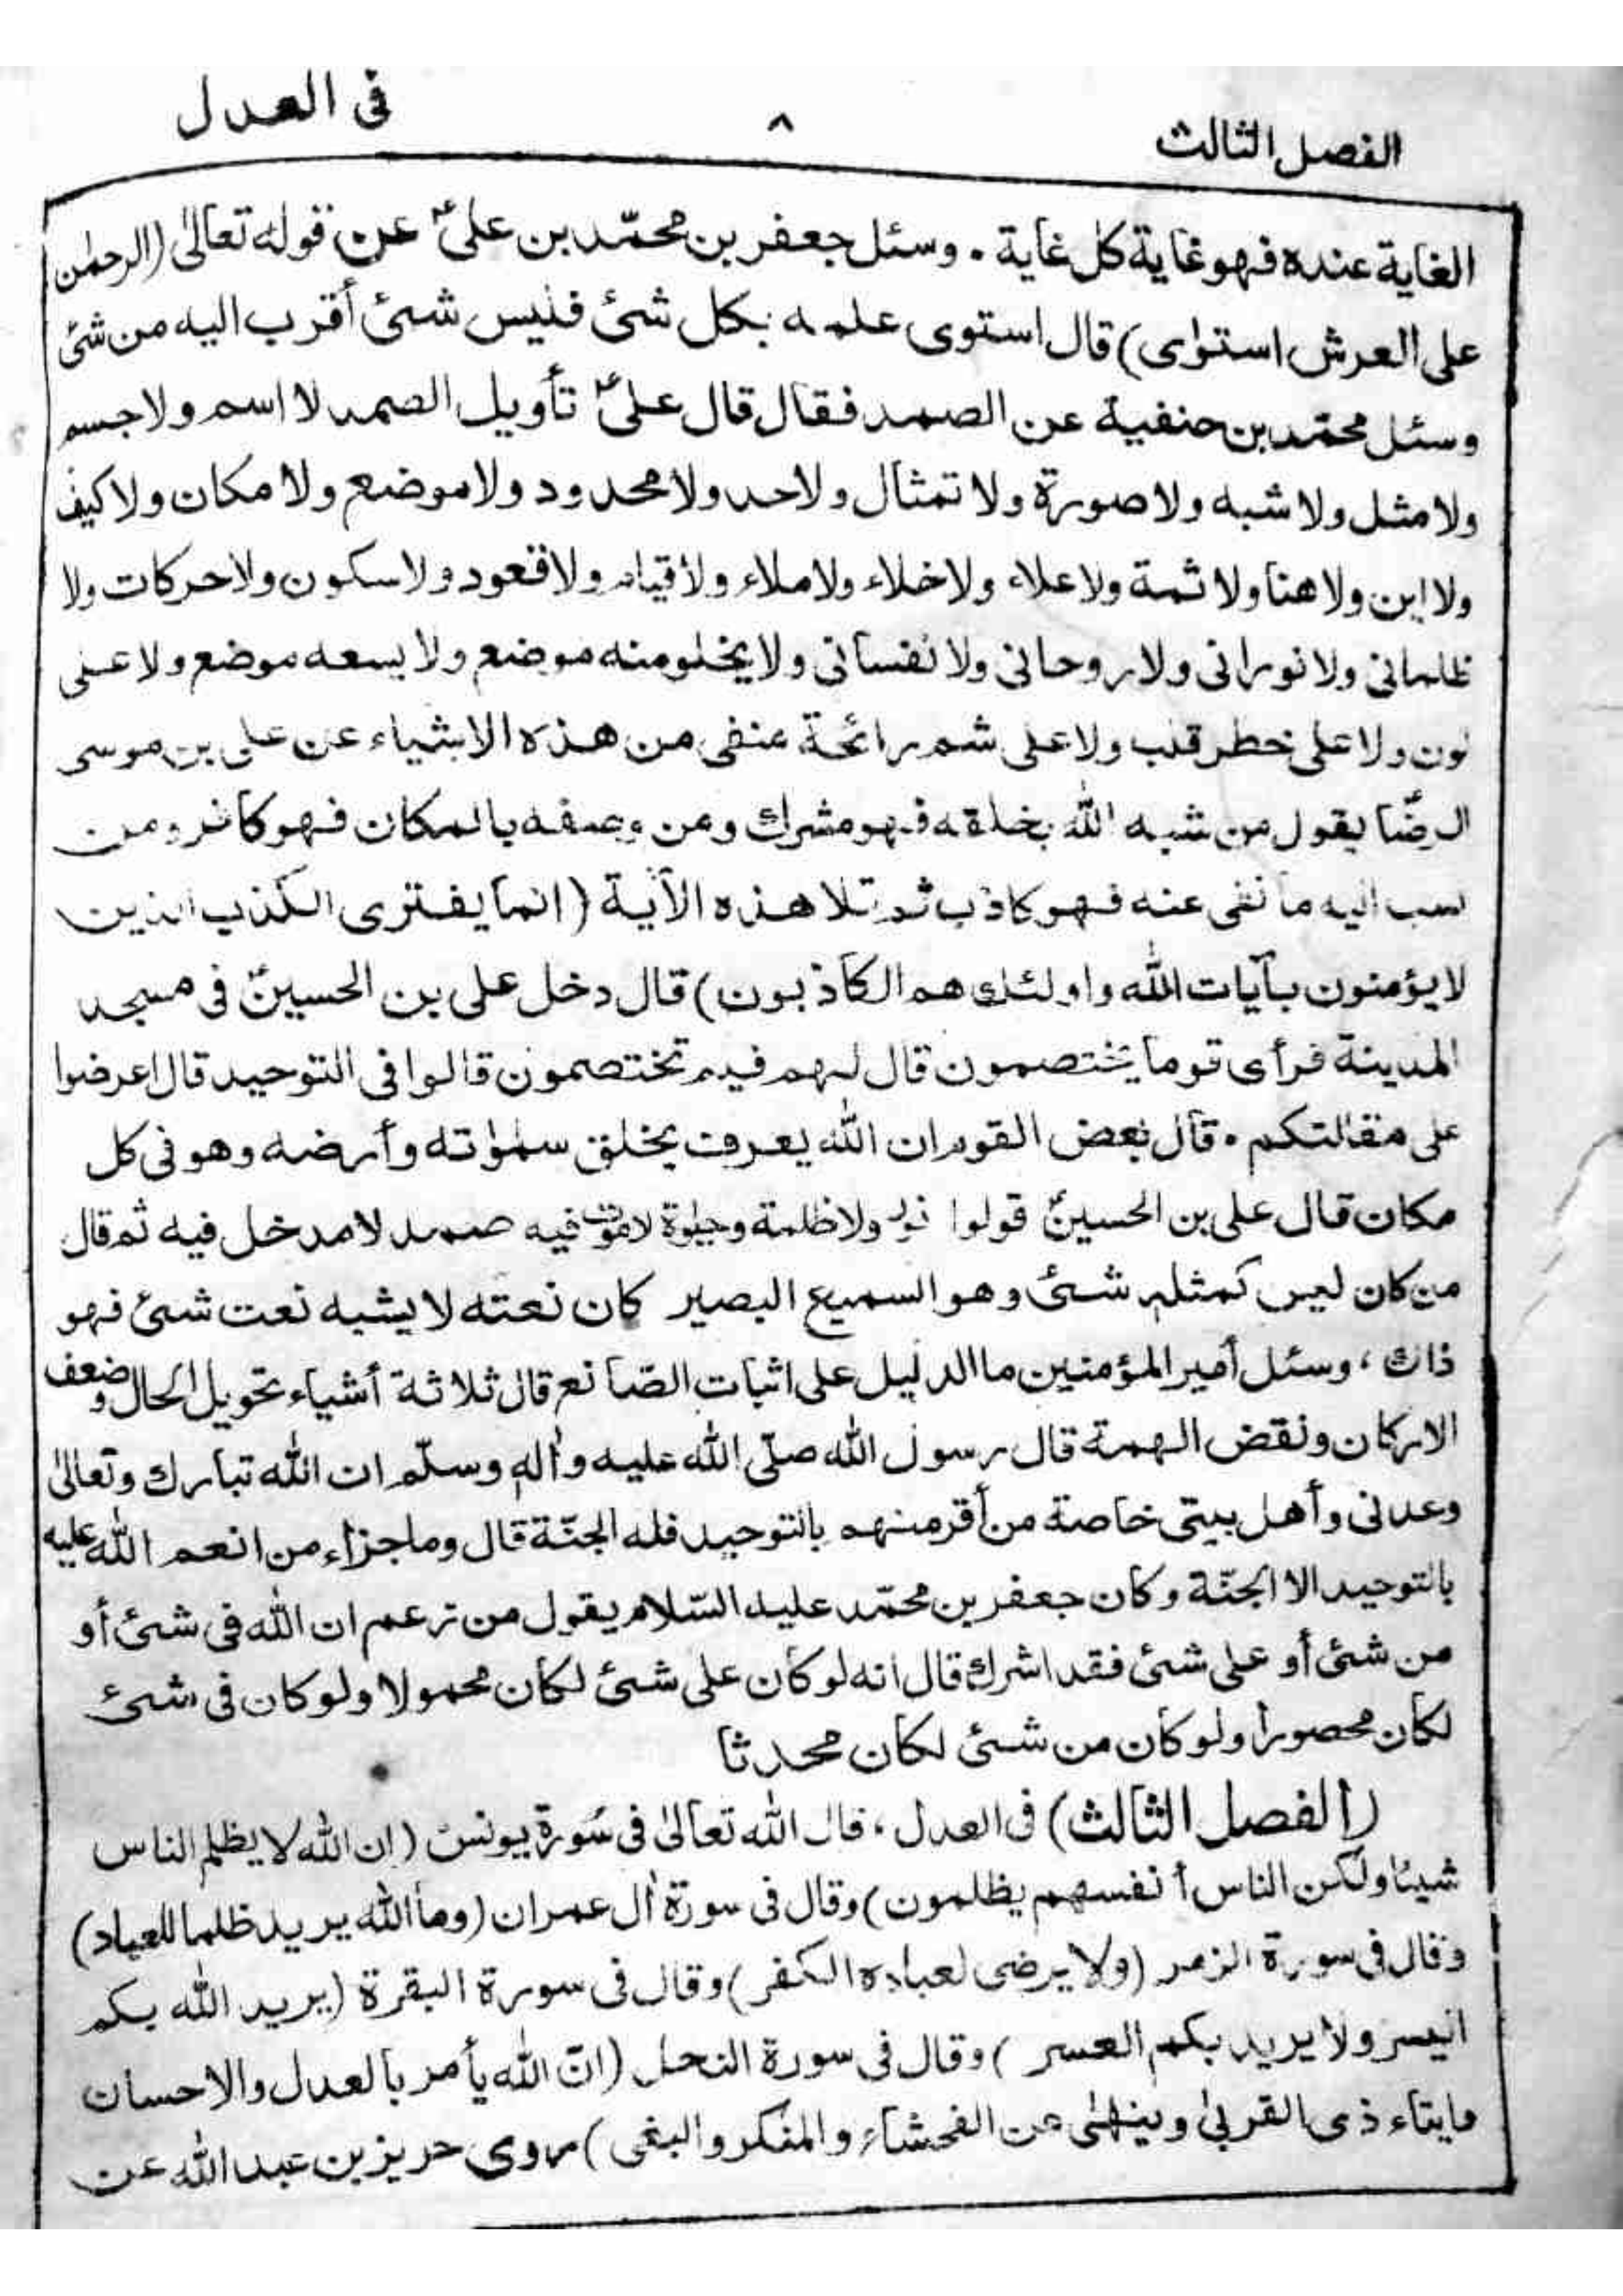 الفصل الثالث ٨ فى العدل
الغاية عنده فهو غاية كل غاية . وسئل جعفر بن محمّد بن علىؑ عن قوله تعالىٰ (الرحمٰن
على العرش استوٰى) قال استوى علمه بكل شئ فليس شئ أقرب اليه من شئ
وسئل محمّد بن حنفية عن الصمد فقال قال علىؑ تأويل الصمد لا اسم ولا جسم
ولا مثل ولا شبه ولا صورة ولا تمثال ولا حد ولا محدود ولا موضع ولا مكان ولا كيف
ولا اين ولا هنا ولا ثمة ولا علاء ولا خلاء ولا ملاء ولا قيام ولا قعود ولا سكون ولا حركات ولا
ظلمانى ولا نورانى ولا روحانى ولا نفسانى ولا يخلو منه موضع ولا يسعه موضع ولا على
لون ولا على خطر قلب ولا على شم رائحة منفى من هذه الاشياء عن على بن موسى
الرضّا يقول من شبه الله بخلقه فهو مشرك ومن وصفه بالمكان فهو كافر ومن
نسب اليه ما نفى عنه فهو كاذب ثم تلا هذه الآية (انما يفترى الكذب الذين
لا يؤمنون بآيات الله واولئك هم الكاذبون) قال دخل على بن الحسينؑ فى مسجد
المدينة فرأى قوما يختصمون قال لهم فيم تختصمون قالوا فى التوحيد قال اعرضوا
على مقالتكم . قال بعض القوم ان الله يعرف بخلق سمٰواته وأرضه وهو فى كل
مكان قال على بن الحسينؑ قولوا نور ولا ظلمة وحيٰوة لا موت فيه صمد لا مدخل فيه ثم قال
من كان ليس كمثله شئ وهو السميع البصير كان نعته لا يشبه نعت شئ فهو
ذاك ، وسئل أمير المؤمنين ما الدليل على اثبات الصّانع قال ثلاثة أشياء تحويل الحال وضعف
الاركان ونقض الهمة قال رسول الله صلّى الله عليه واٰله وسلّم ان الله تبارك وتعالىٰ
وعدنى وأهل بيتى خاصة من أقر منهم بالتوحيد فله الجنّة قال وما جزاء من انعم الله عليه
بالتوحيد الا الجنّة وكان جعفر بن محمّد عليه السّلام يقول من زعم ان الله فى شئ أو
من شئ أو على شئ فقد اشرك قال انه لو كان على شئ لكان محمولا ولو كان فى شئ
لكان محصورا ولو كان من شئ لكان محدثا
(الفصل الثالث) فى العدل ، قال الله تعالىٰ فى سُورة يونس (ان الله لا يظلم الناس
شيئا ولكن الناس أنفسهم يظلمون) وقال فى سورة اٰل عمران (وما الله يريد ظلما للعباد)
وقال فى سورة الزمر (ولا يرضى لعباده الكفر) وقال فى سورة البقرة (يريد الله بكم
اليسر ولا يريد بكم العسر) وقال فى سورة النحل (انّ الله يأمر بالعدل والاحسان
وايتاء ذى القربىٰ وينهىٰ عن الفحشاء والمنكر والبغى) روى حريز بن عبد الله عن